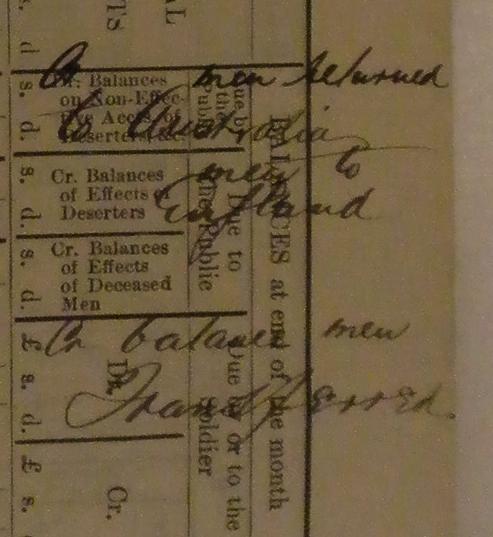 AL
TS
s. d.
Cr men returned
to Australia
men to
England
Cr balance men
Transferred.
Dr. Balances
on Non-Effec-
tive Accts. of
Deserters, &c.
s. d.
Cr. Balances
of Effects of
Deserters
s. d.
Cr. Balances
of Effects
of Deceased
Men
s. d.
Due by
the
Public
Due to
the Public
BALANCES at end of the month
Due by or to the
Soldier
Dr.
£ s. d.
Cr.
£ s.